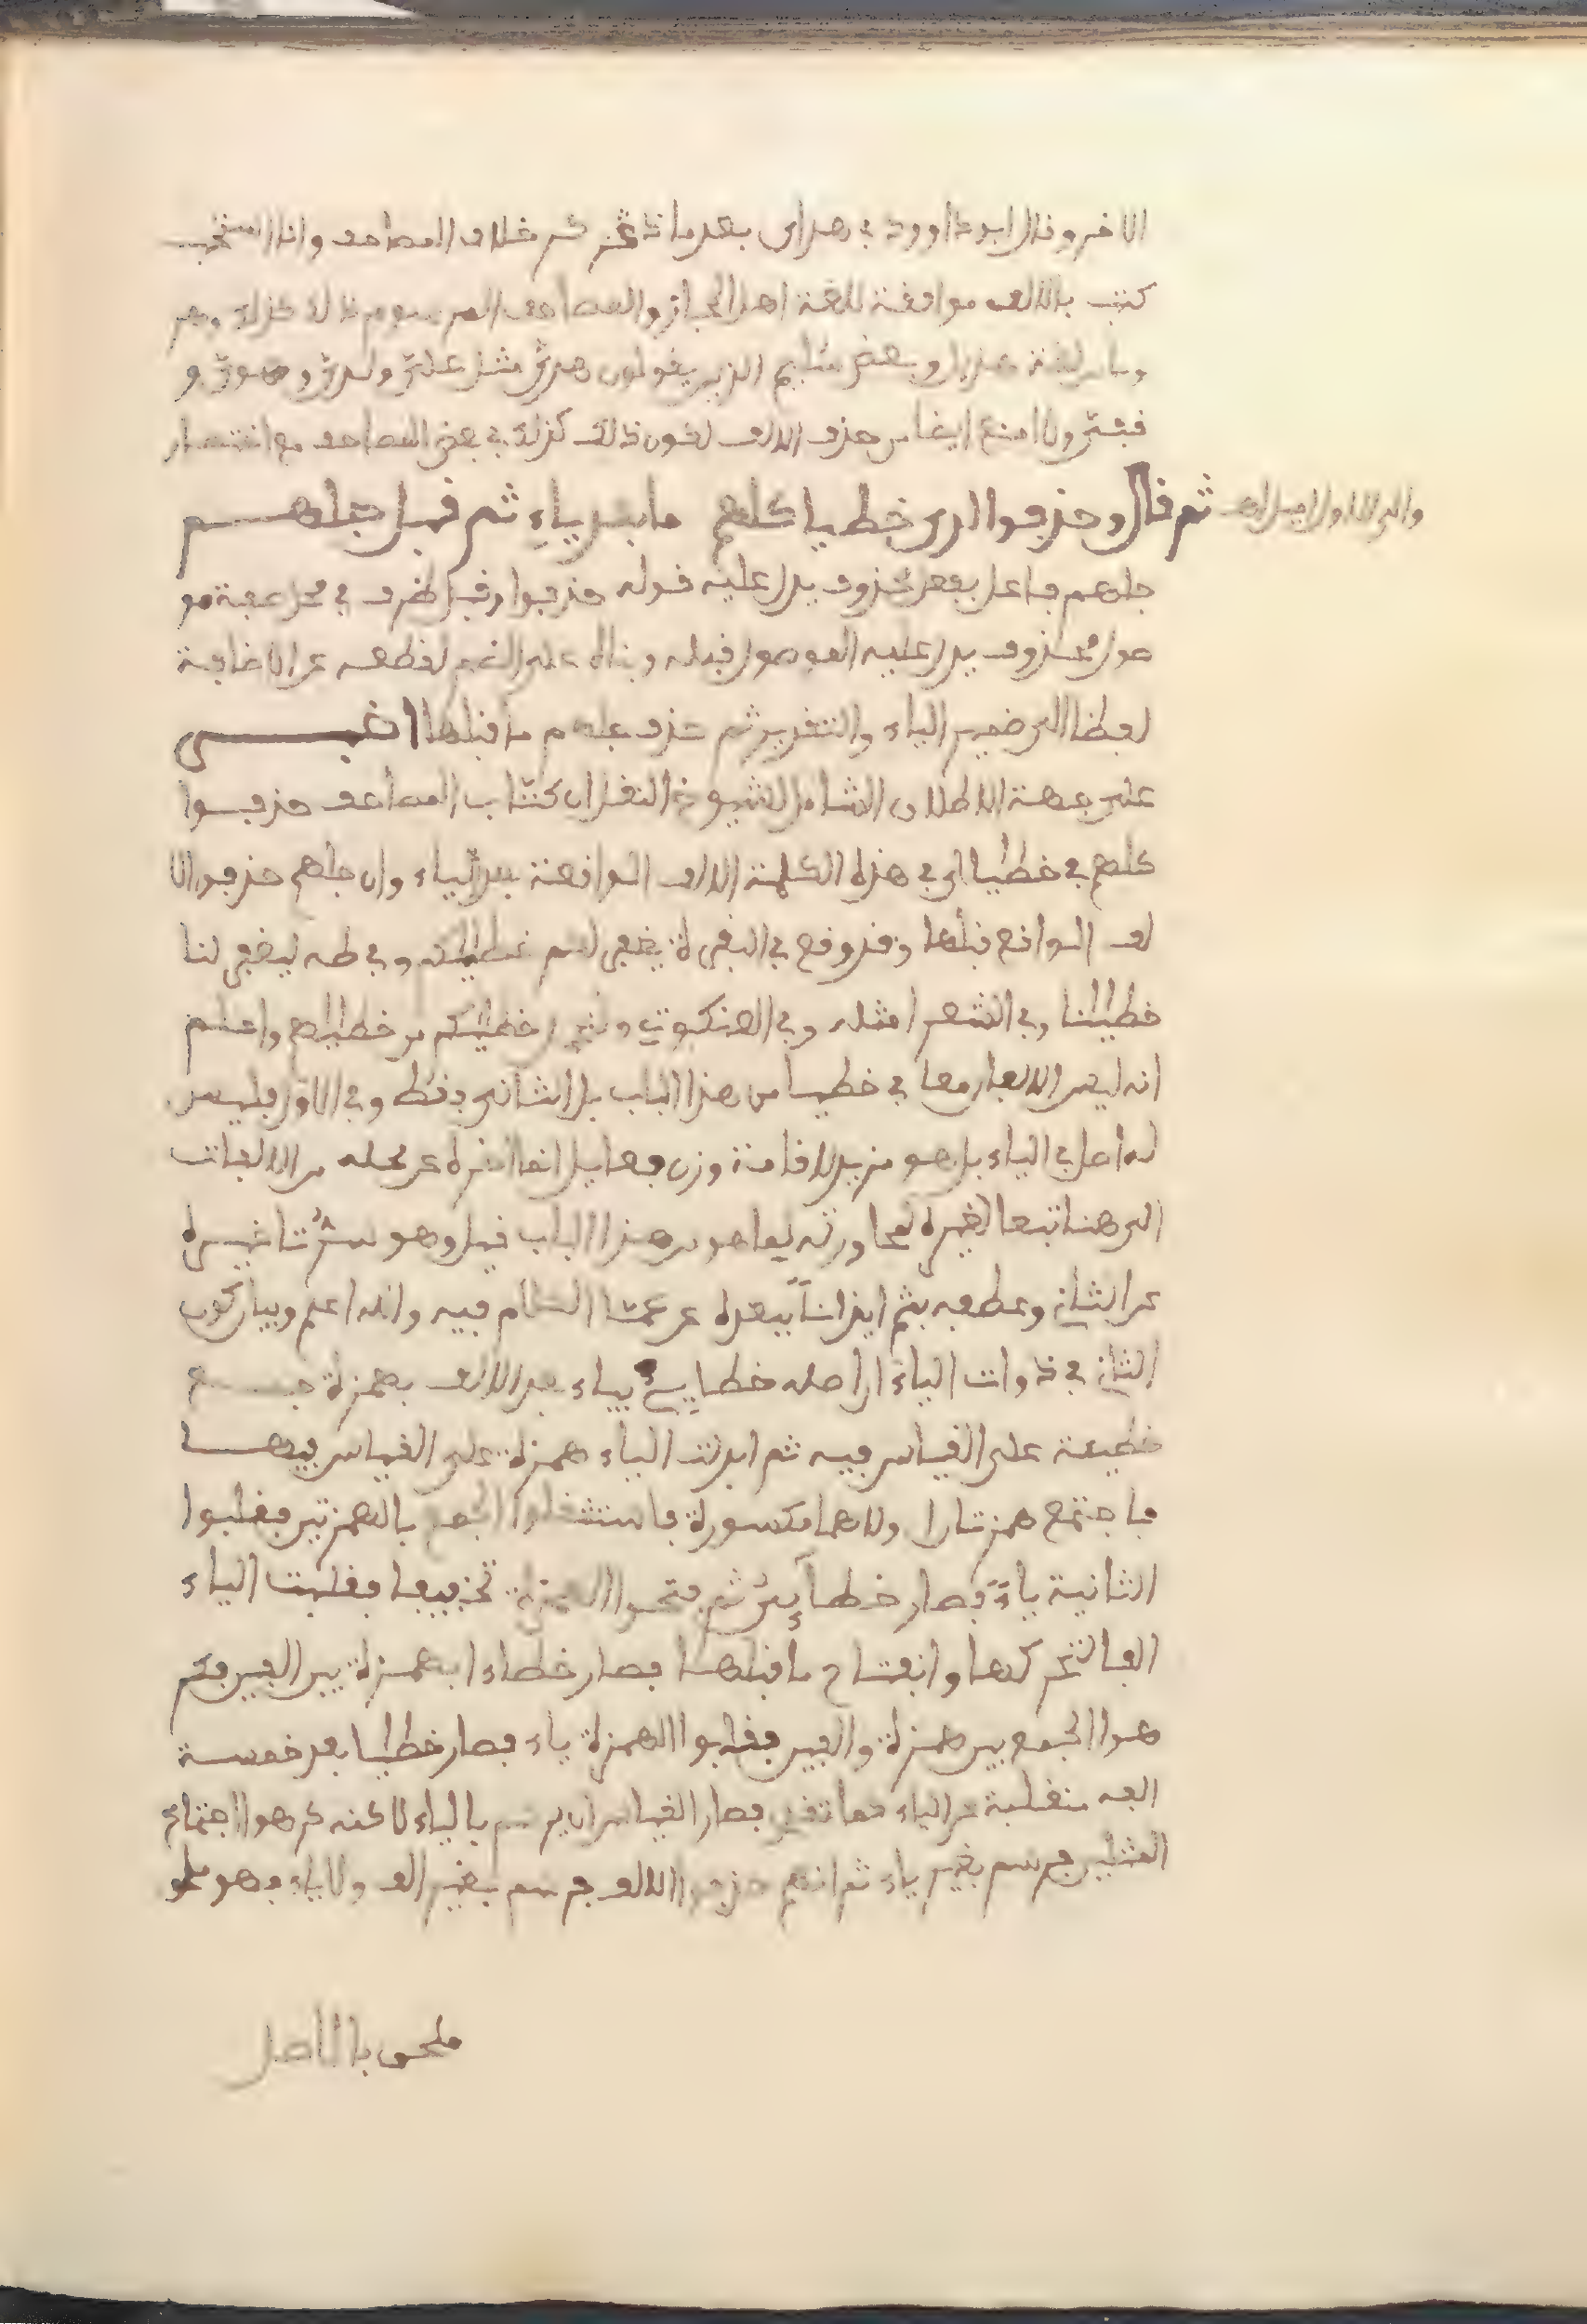 الاخر وقال ابو داوود في هداى بعد ما ذكر خلاف المصاحف وانا استحب
كتب بالالف موافقة للغة اهل الحجاز والمصاحف المرسوم ذلك كذلك
لغة وبعض سليم الذين يقولون هديّ مثل عليّ ولديّ وهويّ و
فقيّ ولا امنع ايضا من حذف الالف لكون ذلك كذلك في بعض المصاحف مع اختصار
ثم قال وحذفوا لدى خطيا كلهم ما بعد ياء ثم قبل جلهم
والى الاول اميل اهـ
جلهم فاعل بفعل محذوف يدل عليه قوله حذفوا وقبل ظرف في محل صفة مو
صول محذوف يدل عليه الموصول قبله وبناه على الضم لقطعه عن الاضافة
لفظا الى ضمير الياء والتقدير ثم حذف جلهم ما قبلها اخبـــر
على جهة الاطلاق الشامل لشيوخ النقل ان كتّاب المصاحف حذفوا
كلهم في خطيا اي في هذه الكلمة الالف الواقعة بعد الياء وان جلهم حذفوا الا
لف الواقع قبلها وقد وقع في البقرة يغفر لكم خطيكم وفي طه ليغفر لنا
خطيٰنا وفي الشعرا مثله وفي العنكبوت خطيكم من خطيهم واعلم
انه ليس الالفان معا في خطيا من هذا الباب بل الثاني فقط وفي الاول فليس
له اصل في الياء بل هو مزيد لاقامة وزن فعايل انما اخره عن محله من الالفات
الى هنا تبعا لغيره لمجاورته لما هو من هذا الباب قيل وهو سرّ تاخيره
عن الثاني وعطفه بثم ايذانا ببعده عن الكلام فيه والله اعلم وبيان كون
الثاني في ذوات الياء ان اصله خطايئ بياء بعد الالف بهمزة جمع
خطيئة على القياس فيه ثم ابدلت الياء همزة على القياس فيها
فاجتمع همزتان اولاهما مكسورة فاستثقلوا الجمع بالهمزتين فقلبوا
الثانية ياء فصار خطآئي ثم فتحوا الهمزة تخفيفا فقلبت الياء
الفا لتحركها وانفتاح ما قبلها فصار خطاءا بهمزة بين الفين فكر
هوا الجمع بين همزة والفين فقلبوا الهمزة ياء فصار خطيا بعد خمسة
الفه منقلبة عن الياء كما تقرر فصار القياس ان يرسم بالياء لاكنه كرهوا اجتماع
المثلين فرسم بغير ياء ثم انهم حذفوا الالف فرسم بغير الف ولا ياء فهو ملحق
ملحق بالاصل